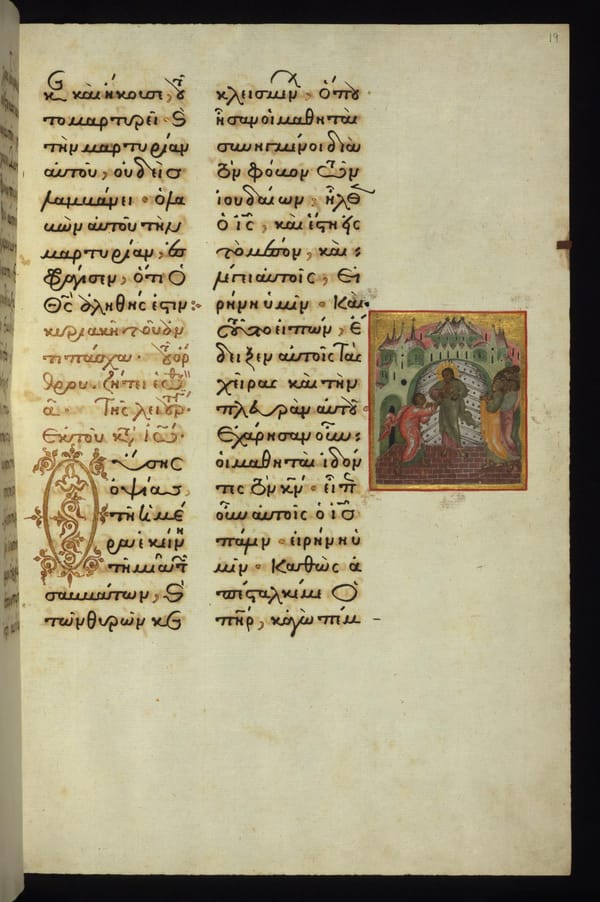 19
κε καὶ ἤκουσε, τοῦ
το μαρτυρεῖ· καὶ
τὴν μαρτυρίαν
αὐτοῦ, οὐδεὶς
λαμβάνει · ὁ λα
βὼν αὐτοῦ τὴν
μαρτυρίαν, ἐσ
φράγισεν, ὅτι ὁ
Θς ἀληθής ἐστιν :
κυριακῆ τοῦ ἀν
τιπάσχα · τοῦ ὄρ
θρου. ζήτει ἑωθ
α · Τῆς λειτουρ ·
Ἐκ τοῦ κτ Ἰω ·
Οὔσης
ὀψίας,
τῇ ἡμέ
ρα ἐκείνη
τῇ μιᾷ τῶν
σαββάτων, καὶ
τῶν θυρῶν κε
κλεισμένων · ὅπου
ἦσαν οἱ μαθηταὶ
συνηγμένοι διὰ
τὸν φόβον τῶν
ἰουδαίων, ἦλθεν
ὁ ις, καὶ ἔστη εἰς
τὸ μέσον, καὶ :
λέγει αὐτοῖς, εἰ
ρήνη ὑμῖν · Καὶ
τοῦτο εἰπὼν, ἔ
δειξεν αὐτοῖς τὰς
χεῖρας καὶ τὴν
πλευρὰν αὐτοῦ ·
Ἐχάρησαν οὖν :
οἱ μαθηταὶ ἰδόν
τες τὸν κν · εἶπεν
οὖν αὐτοῖς ὁ ις
πάλιν · εἰρήνη ὑ
μῖν · Καθὼς ἀ
πέσταλκέ με ὁ
πηρ, κἀγὼ πέμ